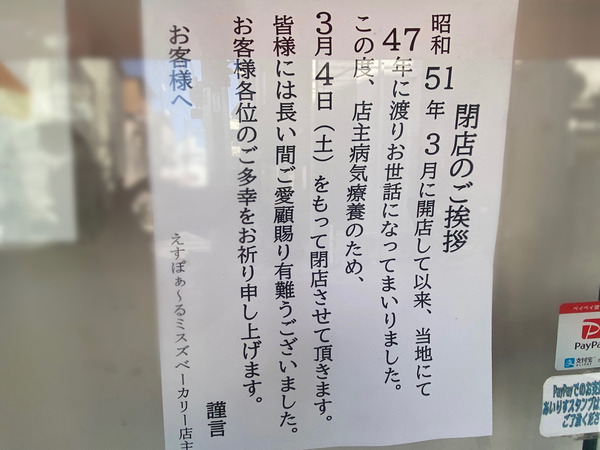 閉店のご挨拶
昭和51年3月に開店して以来、当地にて
47年に渡りお世話になってまいりました。
この度、店主病気療養のため、
3月4日（土）をもって閉店させて頂きます。
皆様には長い間ご愛顧賜り有難うございました。
お客様各位のご多幸をお祈り申し上げます。
謹言
お客様へ
えすぽぁ～るミスズベーカリー店主
ペイペイ
PayPa
支付宝
PayPayでのお支
あいりすスタンプは
ご了承くださ